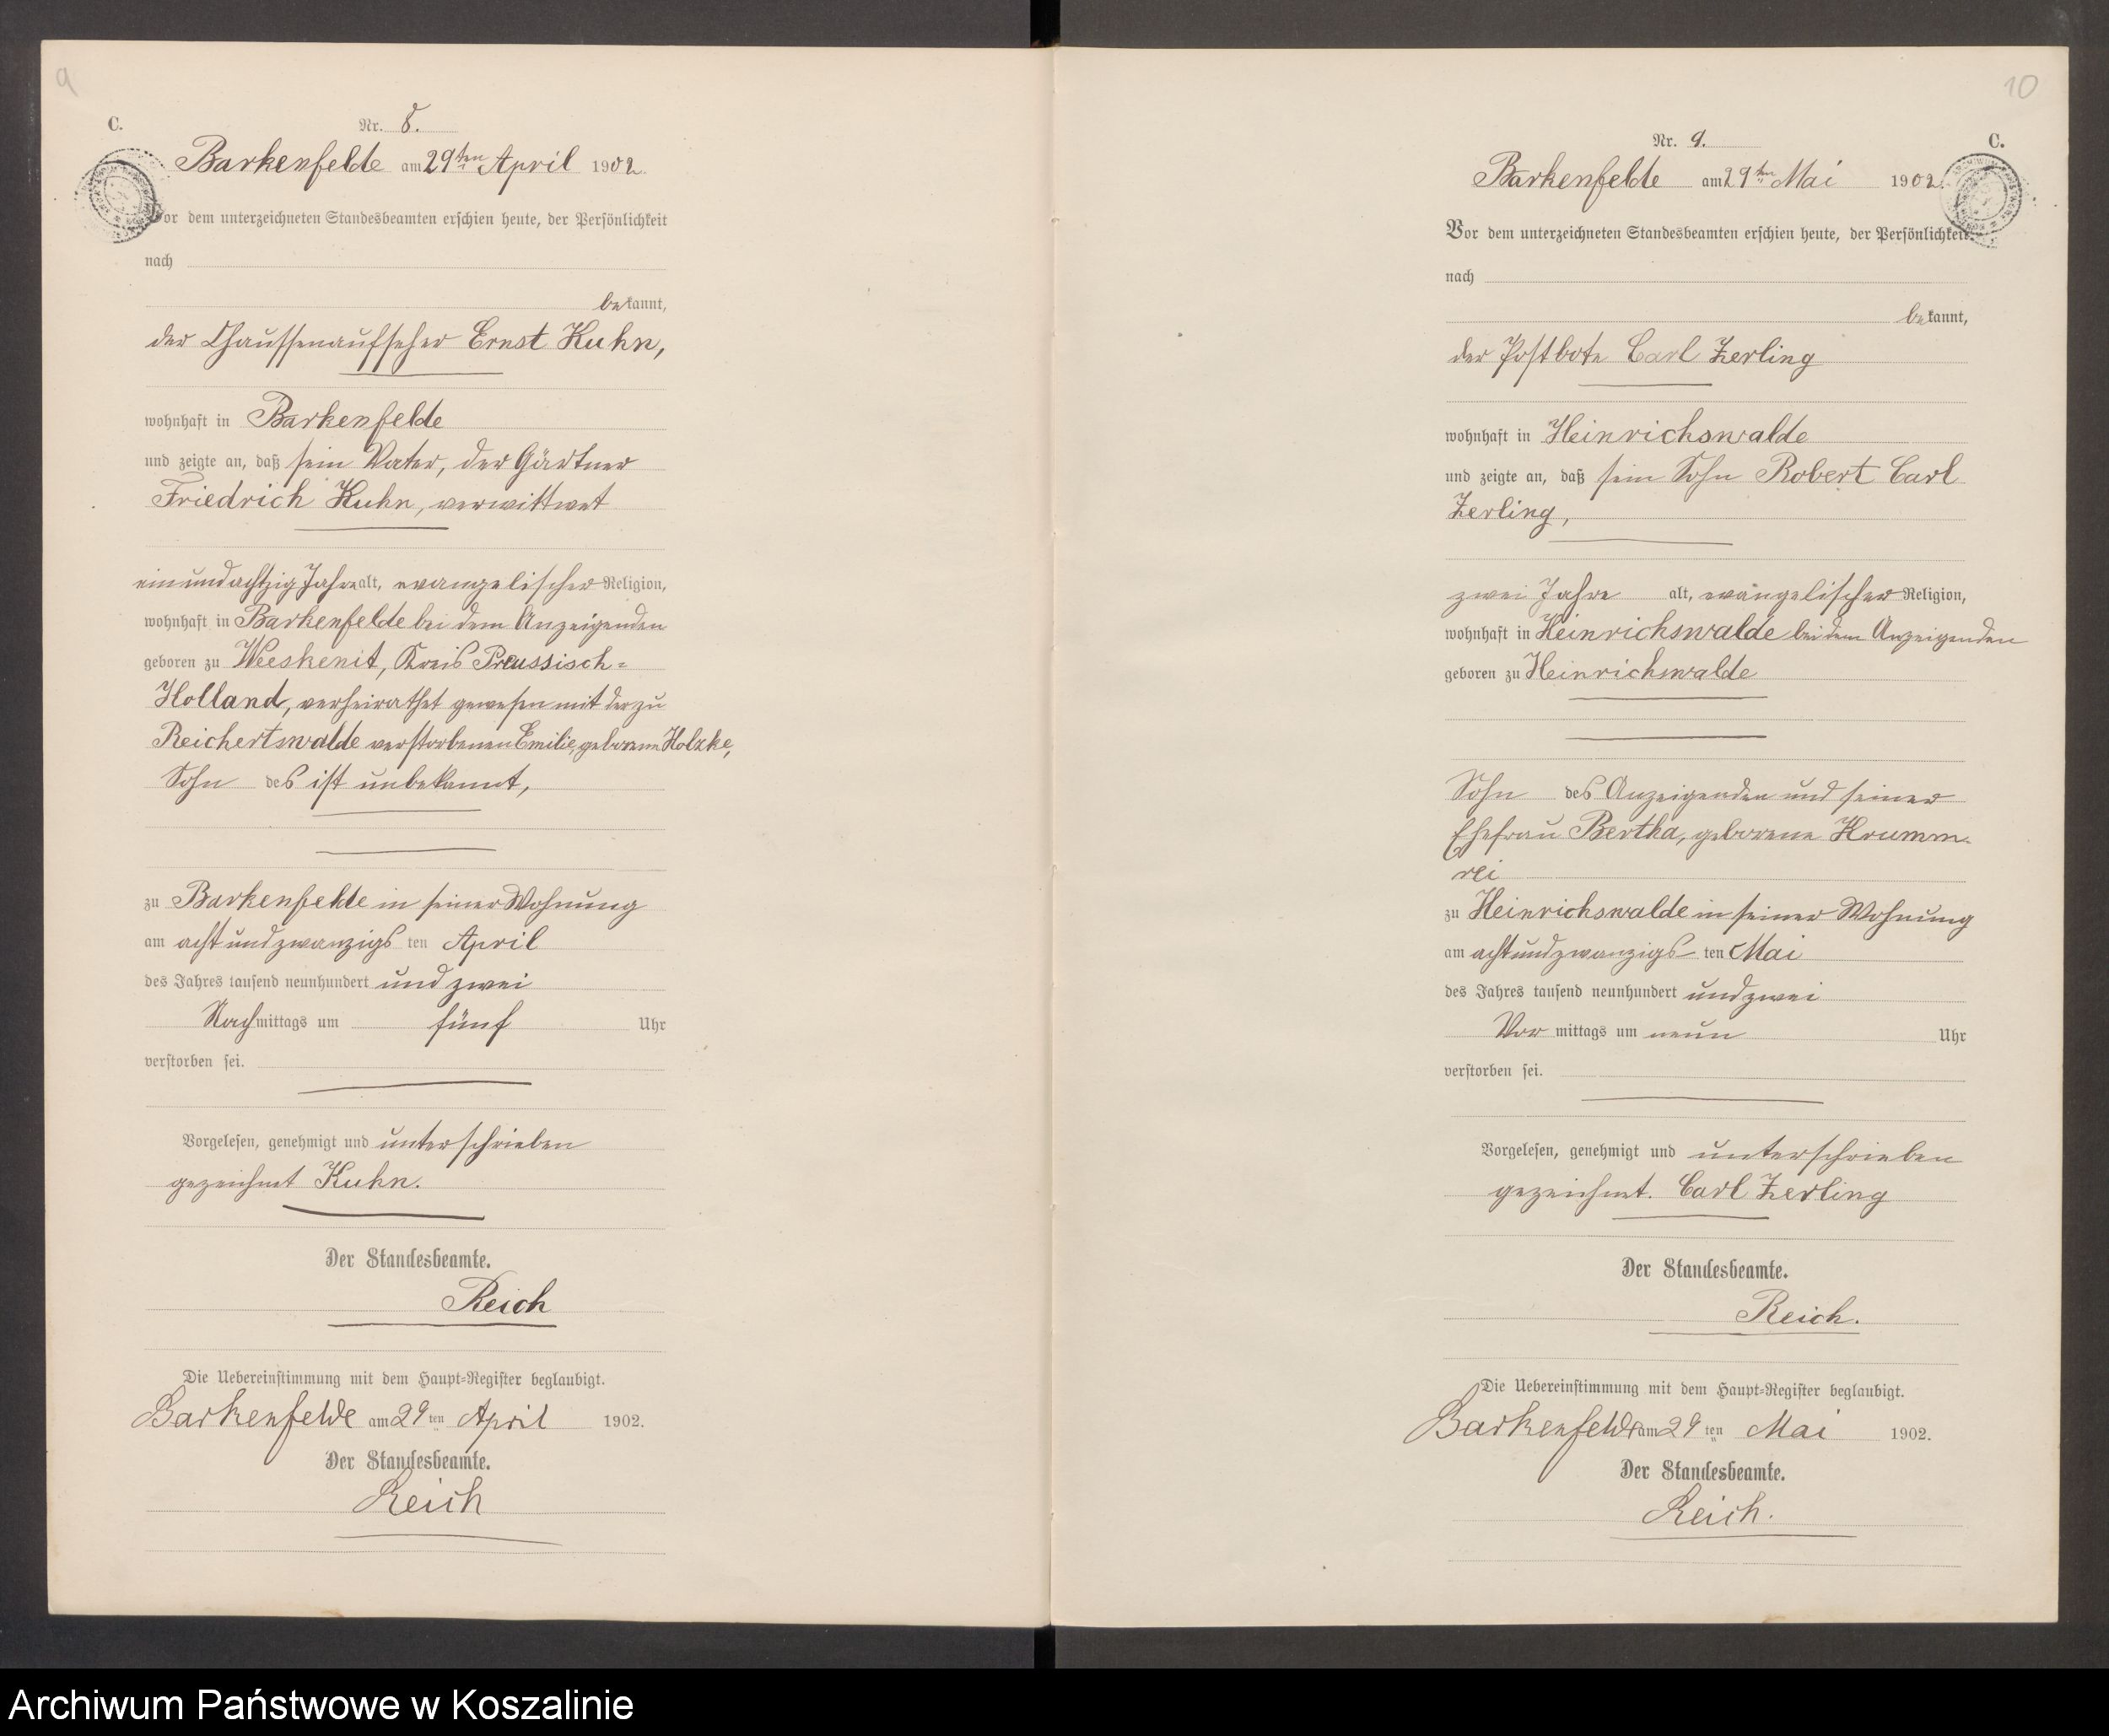 9
C.
Nr. 8.
Barkenfelde am 29ten April 1902.
Vor dem unterzeichneten Standesbeamten erschien heute, der Persönlichkeit
nach
bekannt,
der Chausseeaufseher Ernst Kuhn,
wohnhaft in Barkenfelde
und zeigte an, daß sein Vater, der Gärtner
Friedrich Kuhn, verwittwet
einundachtzig Jahre alt, evangelischer Religion,
wohnhaft in Barkenfelde bei dem Anzeigenden
geboren zu Weeskenit, Kreis Preussisch=
Holland, verheirathet gewesen mit der zu
Reichertswalde verstorbenen Emilie, geborene Holzke,
Sohn des ist unbekannt,
zu Barkenfelde in seiner Wohnung
am achtundzwanzigsten April
des Jahres tausend neunhundert und zwei
Nachmittags um fünf Uhr
verstorben sei.
Vorgelesen, genehmigt und unterschrieben
gezeichnet Kuhn.
Der Standesbeamte.
Reich
Die Uebereinstimmung mit dem Haupt=Register beglaubigt.
Barkenfelde am 29ten April 1902.
Der Standesbeamte.
Reich
10
Nr. 9.
C.
Barkenfelde am 29ten Mai 1902.
Vor dem unterzeichneten Standesbeamten erschien heute, der Persönlichkeit
nach
bekannt,
der Postbote Carl Zerling
wohnhaft in Heinrichswalde
und zeigte an, daß sein Sohn Robert Carl
Zerling,
zwei Jahre alt, evangelischer Religion,
wohnhaft in Heinrichswalde bei dem Anzeigenden
geboren zu Heinrichswalde
Sohn des Anzeigenden und seiner
Ehefrau Bertha, geborene Krumm-
rei
zu Heinrichswalde in seiner Wohnung
am achtundzwanzigsten Mai
des Jahres tausend neunhundert und zwei
Vormittags um neun Uhr
verstorben sei.
Vorgelesen, genehmigt und unterschrieben
gezeichnet. Carl Zerling
Der Standesbeamte.
Reich.
Die Uebereinstimmung mit dem Haupt=Register beglaubigt.
Barkenfelde am 29ten Mai 1902.
Der Standesbeamte.
Reich.
Archiwum Państwowe w Koszalinie